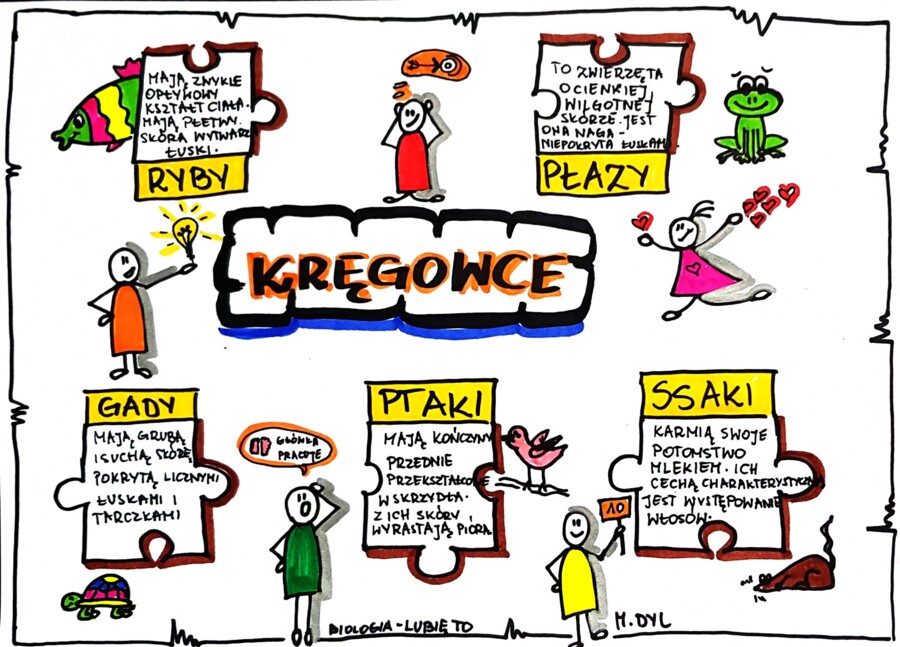 MAJĄ ZWYKLE
OPŁYWOWY
KSZTAŁT CIAŁA.
MAJĄ PŁETWY.
SKÓRA WYTWARZA
ŁUSKI.
RYBY
TO ZWIERZĘTA
O CIENKIEJ,
WILGOTNEJ
SKÓRZE. JEST
ONA NAGA -
NIEPOKRYTA ŁUSKAMI
PŁAZY
KRĘGOWCE
GADY
MAJĄ GRUBĄ
I SUCHĄ SKÓRĘ,
POKRYTĄ LICZNYMI
ŁUSKAMI I
TARCZKAMI
GŁÓWKA
PRACUJE
PTAKI
MAJĄ KOŃCZYNY
PRZEDNIE
PRZEKSZTAŁCONE
W SKRZYDŁA.
Z ICH SKÓRY
WYRASTAJĄ PIÓRA
SSAKI
KARMIĄ SWOJE
POTOMSTWO
MLEKIEM. ICH
CECHĄ CHARAKTERYSTYCZNĄ
JEST WYSTĘPOWANIE
WŁOSÓW.
10
BIOLOGIA - LUBIĘ TO
M. DYL